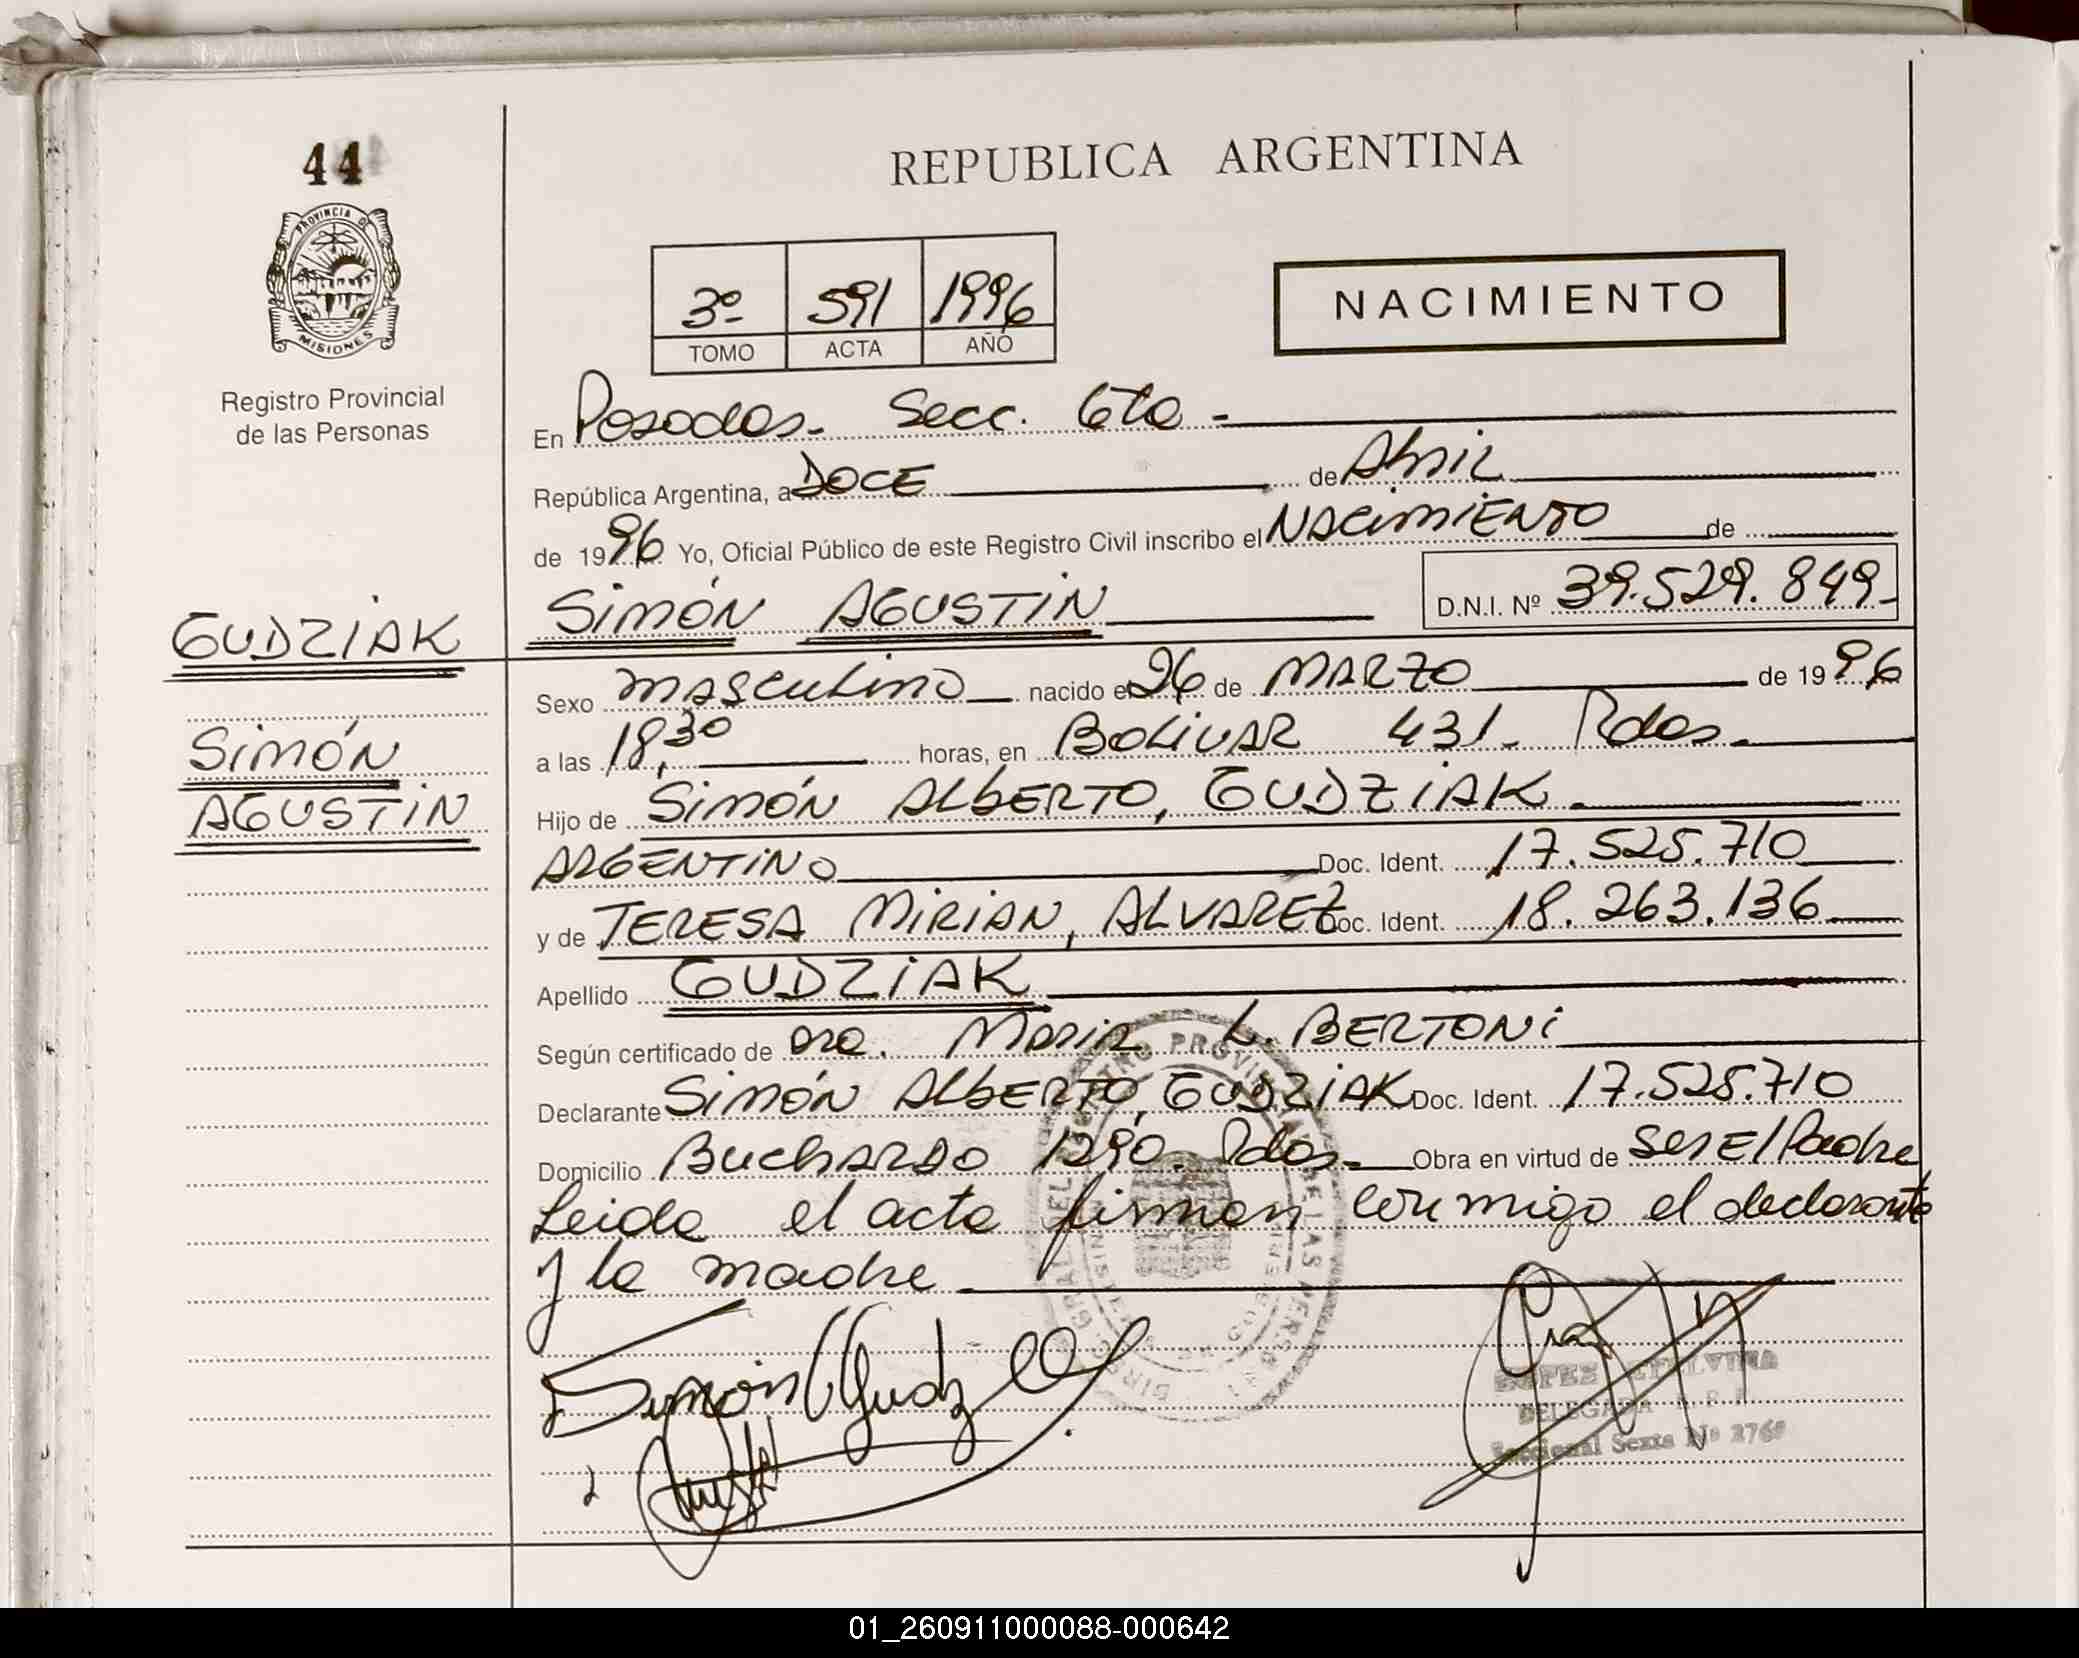 44
PROVINCIA DE
MISIONES
Registro Provincial
de las Personas
GUDZIAK
Simón
AGUSTIN
REPUBLICA ARGENTINA
3º 591 1996
TOMO ACTA AÑO
NACIMIENTO
En Posadas. Secc. 6ta -
República Argentina, a DOCE de Abril
de 1996 Yo, Oficial Público de este Registro Civil inscribo el NACIMIENTO de
Simón AGUSTIN D.N.I. Nº 39.529.849-
Sexo masculino nacido el 26 de MARZO de 1996
a las 18,30 horas, en BOLIVAR 431. Pdas.
Hijo de Simón ALBERTO, GUDZIAK.
ARGENTINO Doc. Ident. 17.525.710
y de TERESA MIRIAN, ALVAREZ Doc. Ident. 18.263.136
Apellido GUDZIAK
Según certificado de Dra. Maria L. BERTONI
Declarante Simón ALBERTO, GUDZIAK Doc. Ident. 17.525.710
Domicilio BUCHARDO 1290. Pdas. Obra en virtud de ser El Padre
Leida el acta firman conmigo el declarante
y la madre
Simón Gudz
DELEGADA
Seccional Sexta Nº 276
01_260911000088-000642